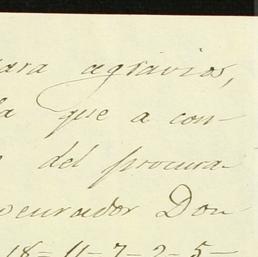 para agravios,
la que a con-
del procura-
procurador Don
18-11-7-2-5-